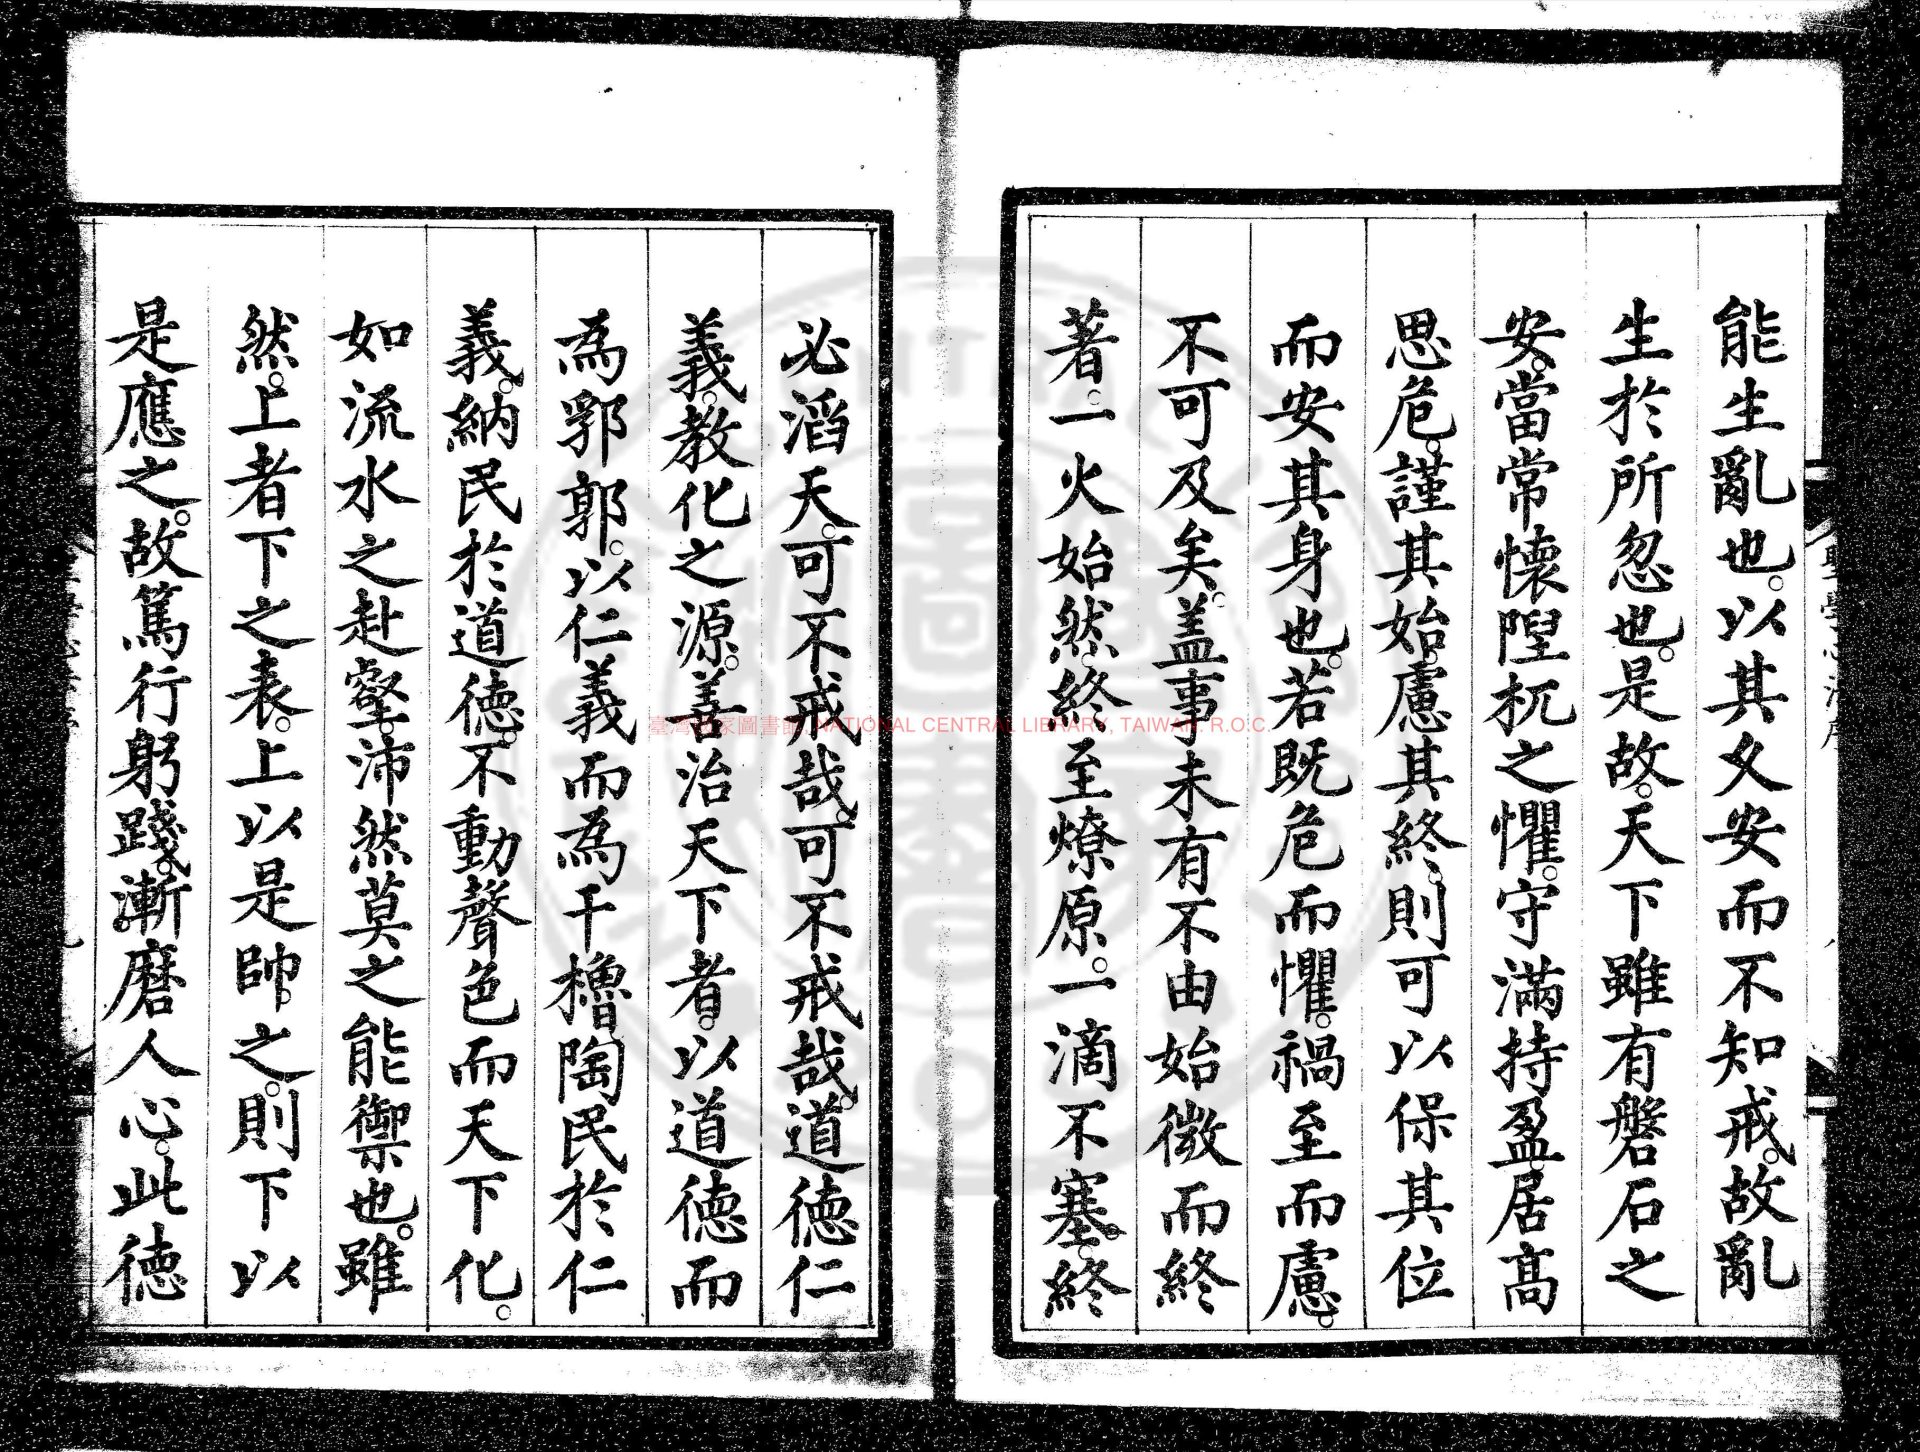 能生亂也。以其乂安而不知戒。故亂
生於所忽也。是故。天下雖有磐石之
安。當常懷隉杌之懼。守滿持盈。居高
思危。謹其始。慮其終。則可以保其位
而安其身也。若既危而懼。禍至而慮。
不可及矣。盖事未有不由始微而終
著。一火始然。終至燎原。一滴不塞。終
必滔天。可不戒哉。可不戒哉。道德仁
義。教化之源。善治天下者。以道德而
為郛郭。以仁義而為干櫓。陶民於仁
義。納民於道德。不動聲色而天下化。
如流水之赴壑。沛然莫之能禦也。雖
然。上者下之表。上以是帥之。則下以
是應之。故篤行躬踐。漸磨人心。此德
臺灣國家圖書館, NATIONAL CENTRAL LIBRARY, TAIWAN, R.O.C.